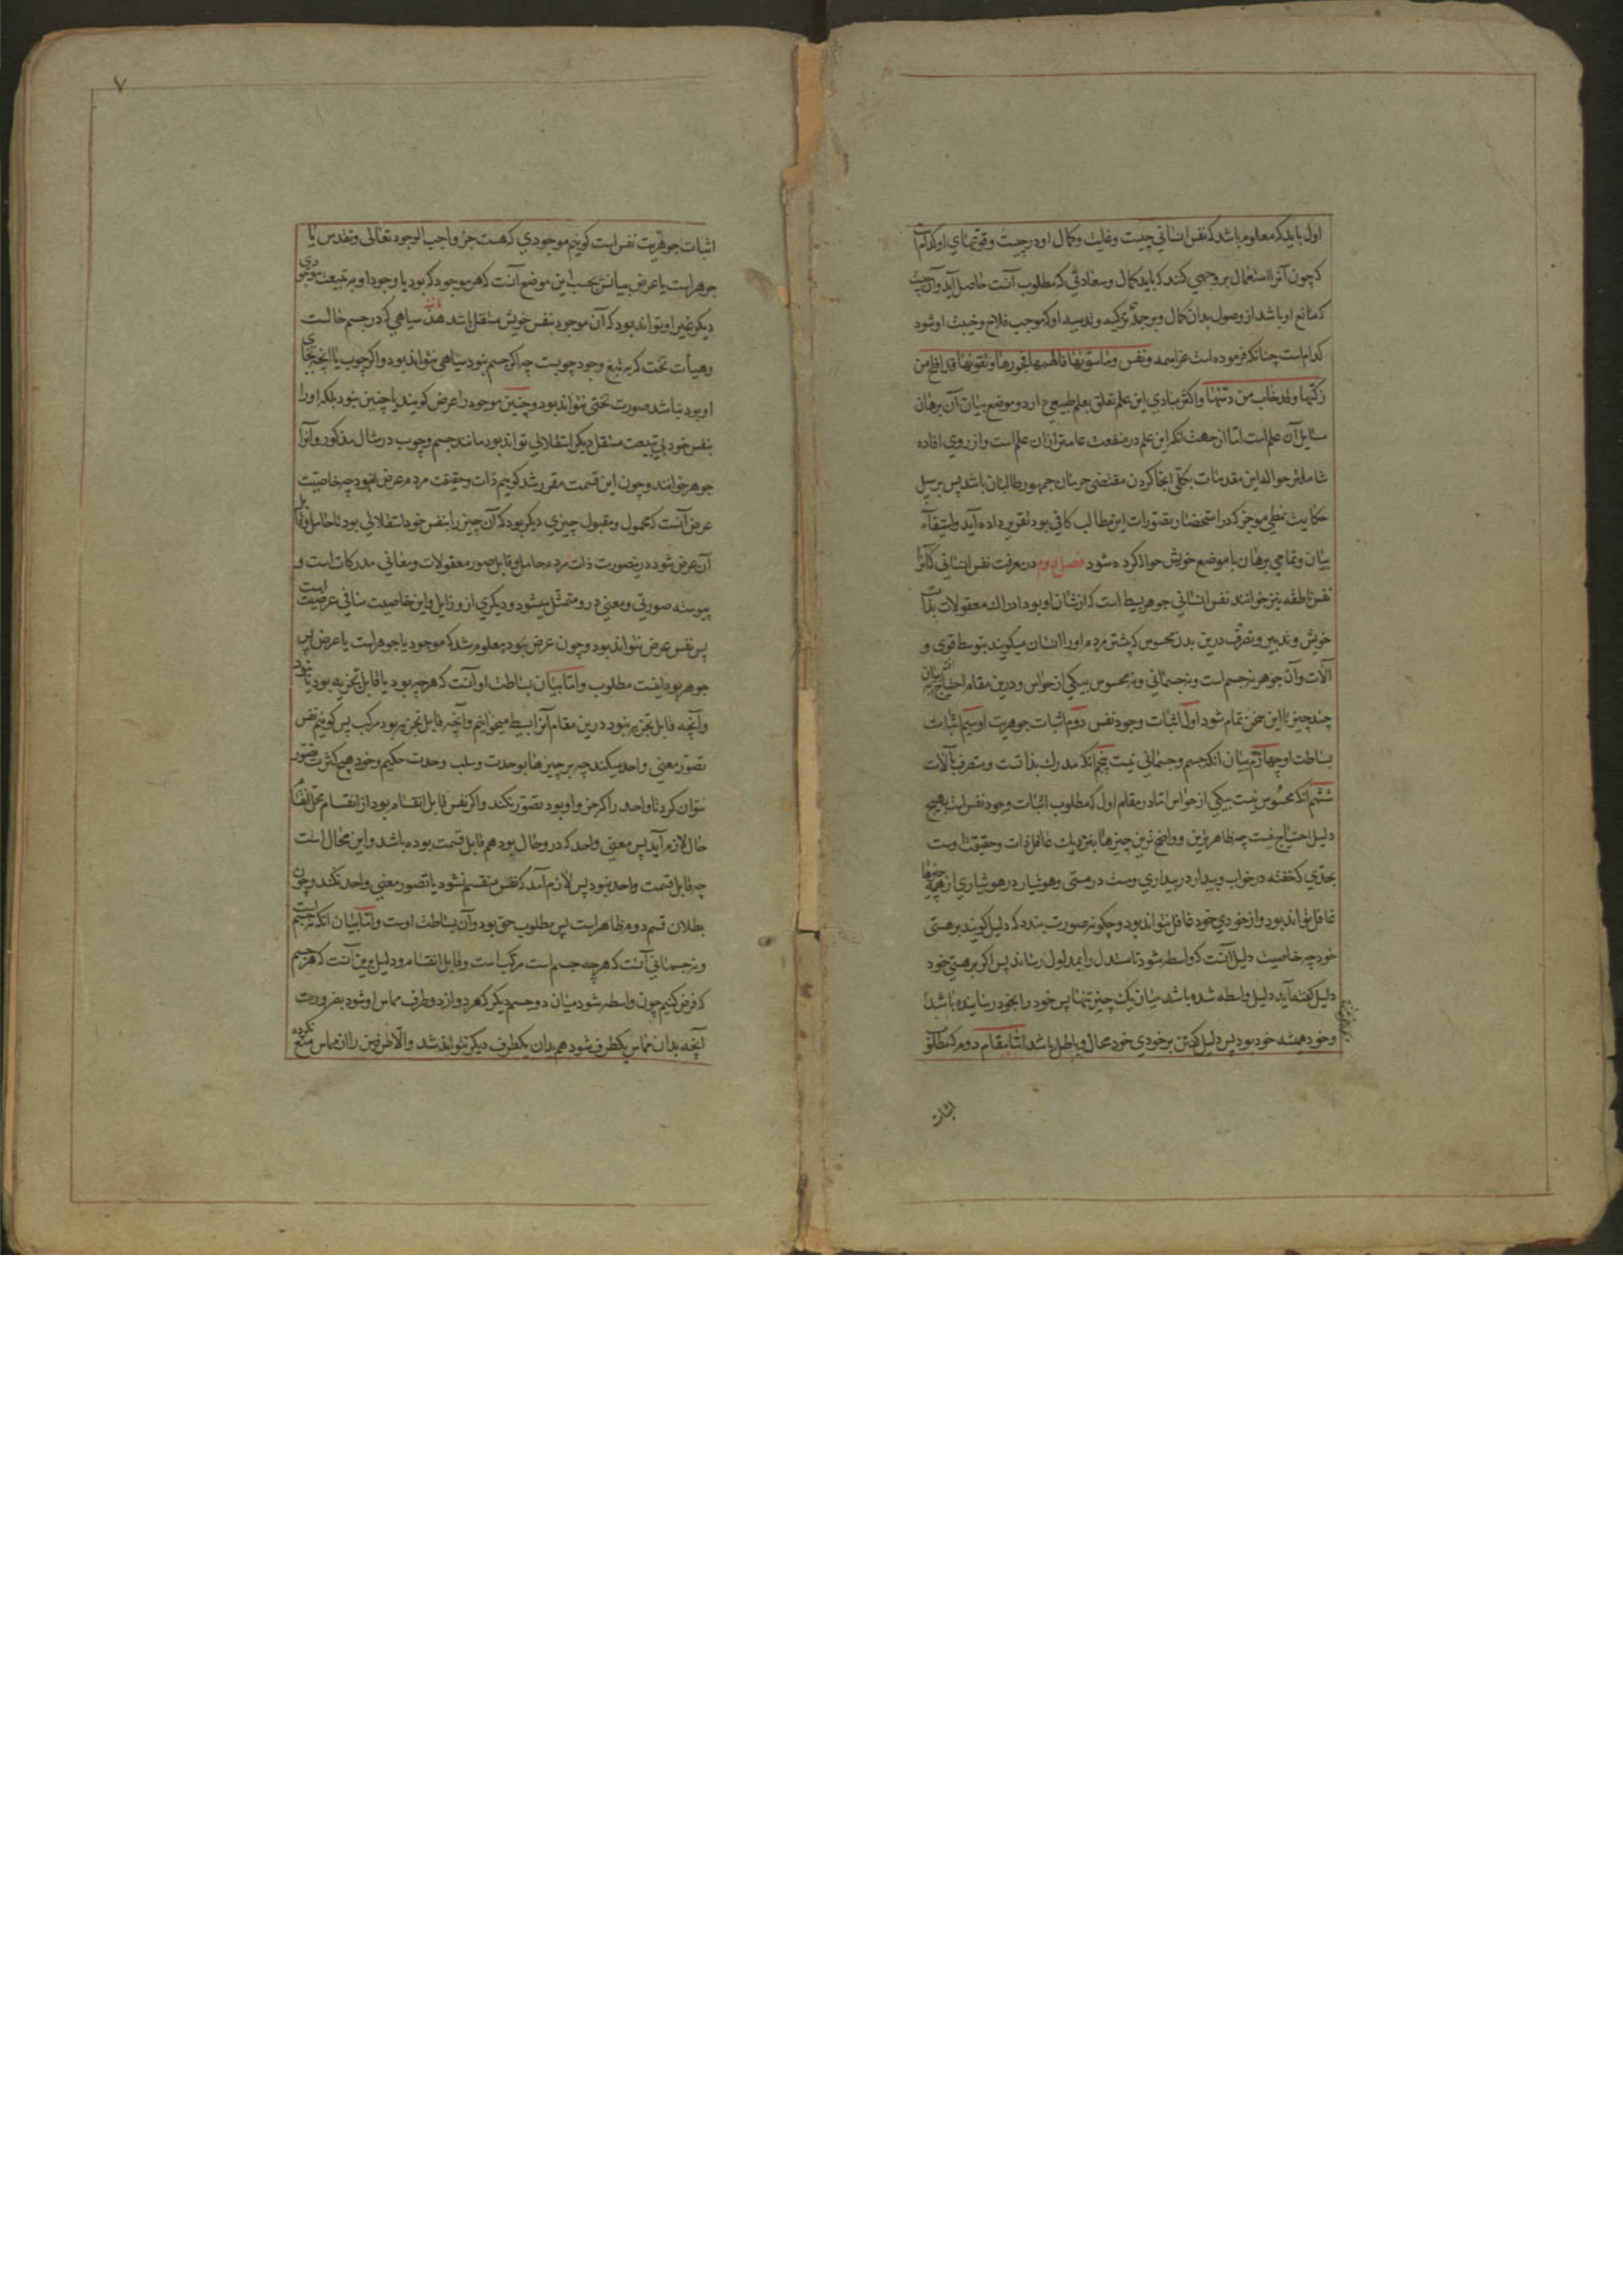 اول باید که معلوم باشد که نفس انسانی چیست و غایت و کمال او در چیست و قوتهای او کدام است
که چون آنرا استعمال بر وجهی کنند که باید کمال و سعادتی که مطلوب آنست حاصل آید و آن چیست
که مانع او باشد از وصول بدان کمال و بر جمله تزکیه و تدسیه او که موجب فلاح و خیبت او شود
کدام است چنانکه فرموده است عز اسمه ونفس وما سویها فالهمها فجورها وتقویها قد افلح من
زکیها وقد خاب من دسیها و اکثر مبادی این علم تعلق بعلم طبیعی دارد و موضع بیان آن برهان
مسایل آن علم است اما از جهت آنکه این علم در منفعت عامتر از ان علم است و از روی افاده
شاملتر حواله این مقدمات بکلی انجا کردن مقتضی حرمان جمهور طالبان باشد پس بر سبیل
حکایت نمطی موجز که در استحضار تصورات این مطالب کافی بود تقریر داده آید و استیفاء
بیان و تمامی برهان با موضع خویش حواله کرده شود فصل دوم در معرفت نفس انسانی که آنرا
نفس ناطقه نیز خوانند نفس انسانی جوهر بسیط است که از شان او بود ادراک معقولات بذات
خویش و تدبیر و تصرف درین بدن محسوس که بیشتر مردم او را انسان میگویند بتوسط قوی و
آلات و آن جوهر نه جسم است و نه جسمانی و نه محسوس بیکی از حواس و درین مقام احتیاج افتد به بیان
چند چیز تا این سخن تمام شود اول اثبات وجود نفس دوم اثبات جوهریت او سیم اثبات
بساطت او چهارم بیان آنکه جسم و جسمانی نیست پنجم آنکه مدرک بذاتست و متصرف بآلات
ششم آنکه محسوس نیست بیکی از حواس اما در مقام اول که مطلوب اثبات وجود نفس است بهیچ
دلیل احتیاج نیست چه ظاهرترین و واضح ترین چیزها بنزدیک عاقل ذات و حقیقت اوست
بحدی که خفته در خواب و بیدار در بیداری و مست در مستی و هوشیار در هوشیاری از همه چیزها
غافل تواند بود و از خودی خود غافل نتواند بود و چگونه صورت بندد که دلیل گویند بر هستی
خود چه خاصیت دلیل آنست که واسطه شود تا مستدل را بمدلول رساند پس اگر بر هستی خود
دلیل گفته آید دلیل واسطه شده باشد میان یک چیز تنها پس خود را بخود رسانیده باشد
و خود همیشه خود بود پس دلیل گفتن بر خودی خود محال و باطل باشد اما مقام دوم که مطلوب
اثبات
۷
اثبات جوهریت نفس است گوییم موجودی که هست جز واجب الوجود تعالی و تقدس یا
جوهر است یا عرض بیانش بحسب این موضع آنست که هر موجود که بود یا وجود او بر تبعیت موجودی
دیگر غیر او تواند بود که آن موجود بنفس خویش مستقل باشد مانند سیاهی که در جسم حالست
و هیأت تخت که به تبع وجود چوبست چه اگر جسم نبود سیاهی نتواند بود و اگر چوب یا آنچه بجای
او بود نباشد صورت تختی نتواند بود و چنین موجود را عرض گویند یا چنین نبود بلکه او را
بنفس خود بی تبعیت مستقل دیگر استقلالی تواند بود مانند جسم و چوب در مثال مذکور و آنرا
جوهر خوانند و چون این قسمت مقرر شد گوییم ذات و حقیقت مردم عرض نبود چه خاصیت
عرض آنست که محمول و مقبول چیزی دیگر بود که آن چیز را بنفس خود استقلالی بود تا حامل و قابل
آن عرض شود درینصورت ذات مردم حامل و قابل صور معقولات و معانی مدرکات است و
پیوسته صورتی و معنی درو متمثل میشود و دیگری ازو زایل و این خاصیت منافی عرضیت است
پس نفس عرض نتواند بود و چون عرض نبود معلوم شد که موجود یا جوهر است یا عرض پس
جوهر بود اینست مطلوب و اما بیان بساطت او آنست که هر چه بود یا قابل تجزیه بود یا نبود
و آنچه قابل تجزیه نبود درین مقام آنرا بسیط میخوانیم و آنچه قابل تجزیه بود مرکب پس گوییم نفس
تصور معنی واحد میکند چه بر چیزها بوحدت و سلب وحدت حکیم و خود هیچ کثرت تصور
نتوان کرد تا واحد را که جزو او بود تصور نکند و اگر نفس قابل انقسام بود از انقسام محل انقسام
حال لازم آید پس معنی واحد که در و حال بود هم قابل قسمت بوده باشد و این محال است
چه قابل قسمت واحد نبود پس لازم آمد که نفس منقسم نشود یا تصور معنی واحد نکند و چون
بطلان قسم دوم ظاهر است پس مطلوب حق بود و آن بساطت اوست و اما بیان آنکه نه جسم است
و نه جسمانی آنست که هر چه جسم است مرکب است و قابل انقسام و دلیل برین آنست که هر جسم
که فرض کنیم چون واسطه شود میان دو جسم دیگر که هر دو از دو طرف مماس او شود بضرورت
آنچه بدان مماس یکطرف شود هم بدان یکطرف دیگر نتواند شد و الا طرفین را از تماس منع نکرده